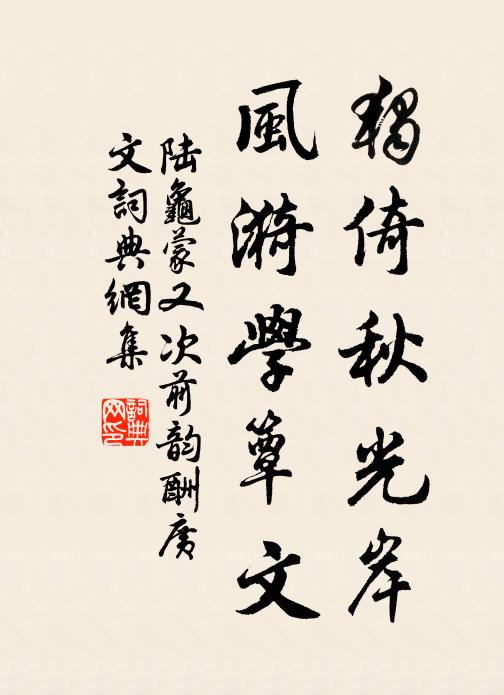 獨倚秋光岸
風漪學簟文
陸龜蒙又次前韵酬廣
文詞典網集
詞典網印